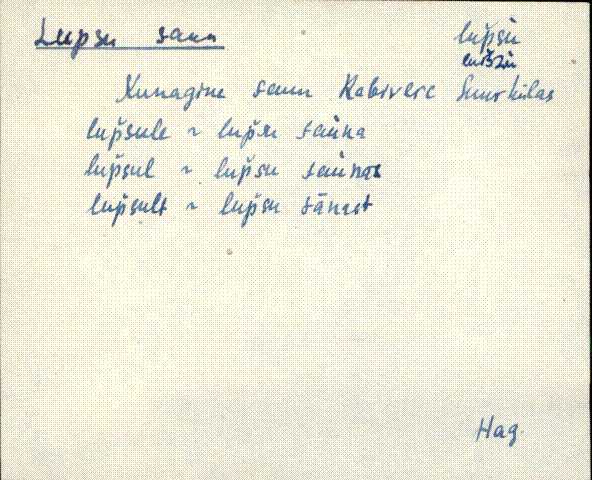 Lupsu saun
lup̌su
Kunagine saun Rabivere Suurkülas
lup̌sule ~ lup̌su sauna
lup̌sul ~ lup̌su saunas
lup̌sult ~ lup̌su sānast
Hag.